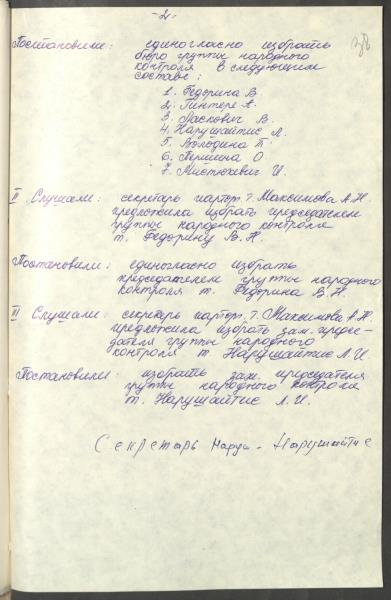 -2-
38
Постановили: единогласно избрать
бюро группы народного
контроля в следующем
составе:
1. Федорина В.
2. Гинтере А.
3. Ласкович В.
4. Нарушайтис Л.
5. Володина Т.
6. Першина О
7. Мистюкевич И.
II Слушали: секретарь парторг. т. Максимова А.Н.
предложила избрать председателем
группы народного контроля
т. Федорину В.Н.
Постановили: единогласно избрать
председателем группы народного
контроля т. Федорина В.Н
III Слушали: секретарь парторг. т. Максимова А.Н.
предложила избрать зам. предсе-
дателя группы народного
контроля т. Нарушайтис Л.И.
Постановили: избрать зам. председателя
группы народного контроля
т. Нарушайтис Л.И.
Секретарь Наруш - Нарушайтис